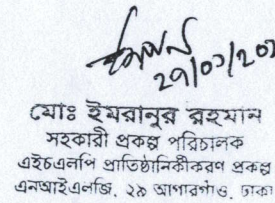 মোঃ ইমরানুর রহমান
সহকারী প্রকল্প পরিচালক
এইচএলপি প্রাতিষ্ঠানিকীকরণ প্রকল্প
এনআইএলজি, ২৯ আগারগাঁও, ঢাকা